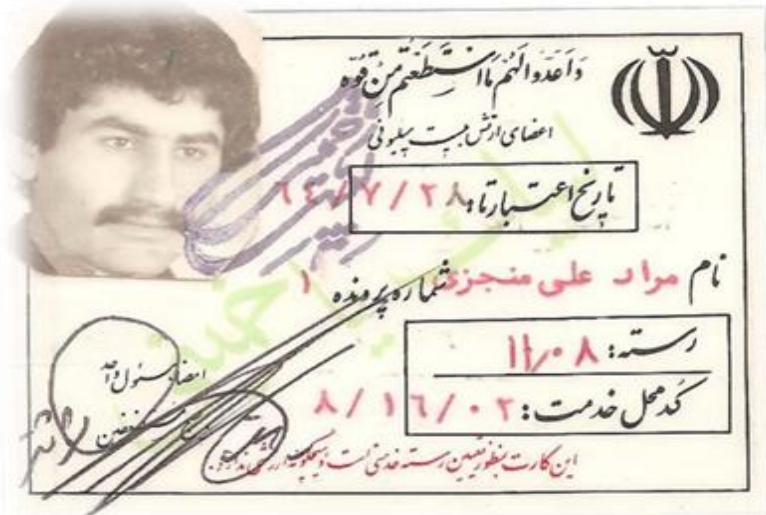 وَأَعِدُّوا لَهُمْ مَا اسْتَطَعْتُمْ مِنْ قُوَّة
اعضای ارتش بیست میلیونی
تاریخ اعتبار تا: ٦٤/٧/٢٨
نام مراد علی منجزی شماره پرونده ١
رسته: ١١/٠٨
کد محل خدمت: ٨/١٦/٠٢
امضاء مسئول واحد
این کارت بمنظور تعیین رسته خدمتی است و هیچگونه ارزشی ندارد